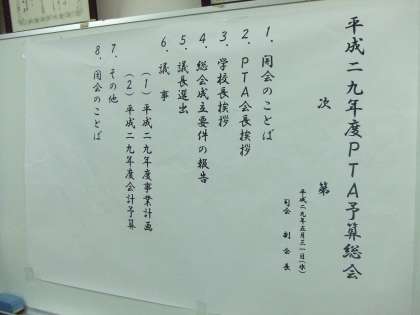 平成二九年度PTA予算総会
次 第
平成二九年五月三一日(水)
司会 副会長
1. 開会のことば
2. PTA会長挨拶
3. 学校長挨拶
4. 総会成立要件の報告
5. 議長選出
6. 議事
(1) 平成二九年度事業計画
(2) 平成二九年度会計予算
7. その他
8. 閉会のことば